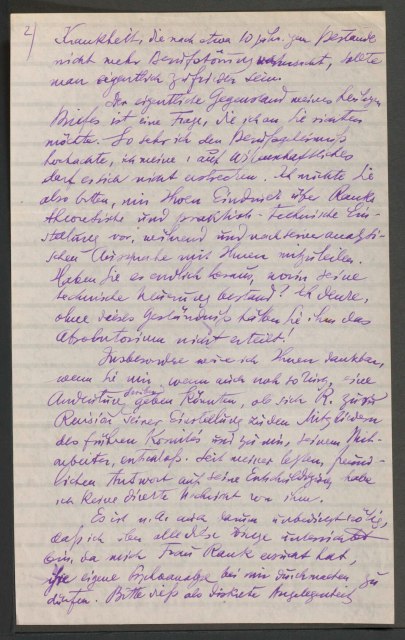 2)
Krankheit, die nach etwa 10 jähr. gem Bestande
nicht mehr Berufsstörung verursacht, sollte
man eigentlich zufrieden sein.
Der eigentliche Gegenstand meines heutigen
Briefes ist eine Frage, die ich an Sie richten
möchte. So sehr ich den Berufsgeheimniß
hochachte, ich meine: auf Wissenschaftliches
darf es sich nicht erstrecken. Ich möchte Sie
also bitten, mir Ihren Eindruck über Ranks
theoretische und praktisch-technische Ein-
stellung vor, während und nach seiner analyti-
schen Aussprache mit Ihnen mitzuteilen.
Haben Sie es endlich heraus, worin seine
technische Neuerung bestand? Ich denke,
ohne dieses Geständniß hätten Sie ihm das
Absolutorium nicht erteilt!
Insbesondere wäre ich Ihnen dankbar,
wenn Sie mir, wenn auch noch so kurz, eine
Andeutung darüber geben könnten, ob sich R. zu einer
Revision seiner Einstellung zu den Mitgliedern
des früheren Komités und zu mir, seinem Mit-
arbeiter, entschloß. Seit meiner letzten, freund-
lichen Antwort auf seine Entschuldigung habe
ich keine direkte Nachricht von ihm.
Es ist u. A. auch darum unbedingt nötig,
daß ich über alle diese Dinge unterrichtet
bin, da mich Frau Rank ersucht hat,
ihre eigene Psychoanalyse bei mir durchmachen zu
dürfen. Bitte dieß als diskrete Angelegenheit